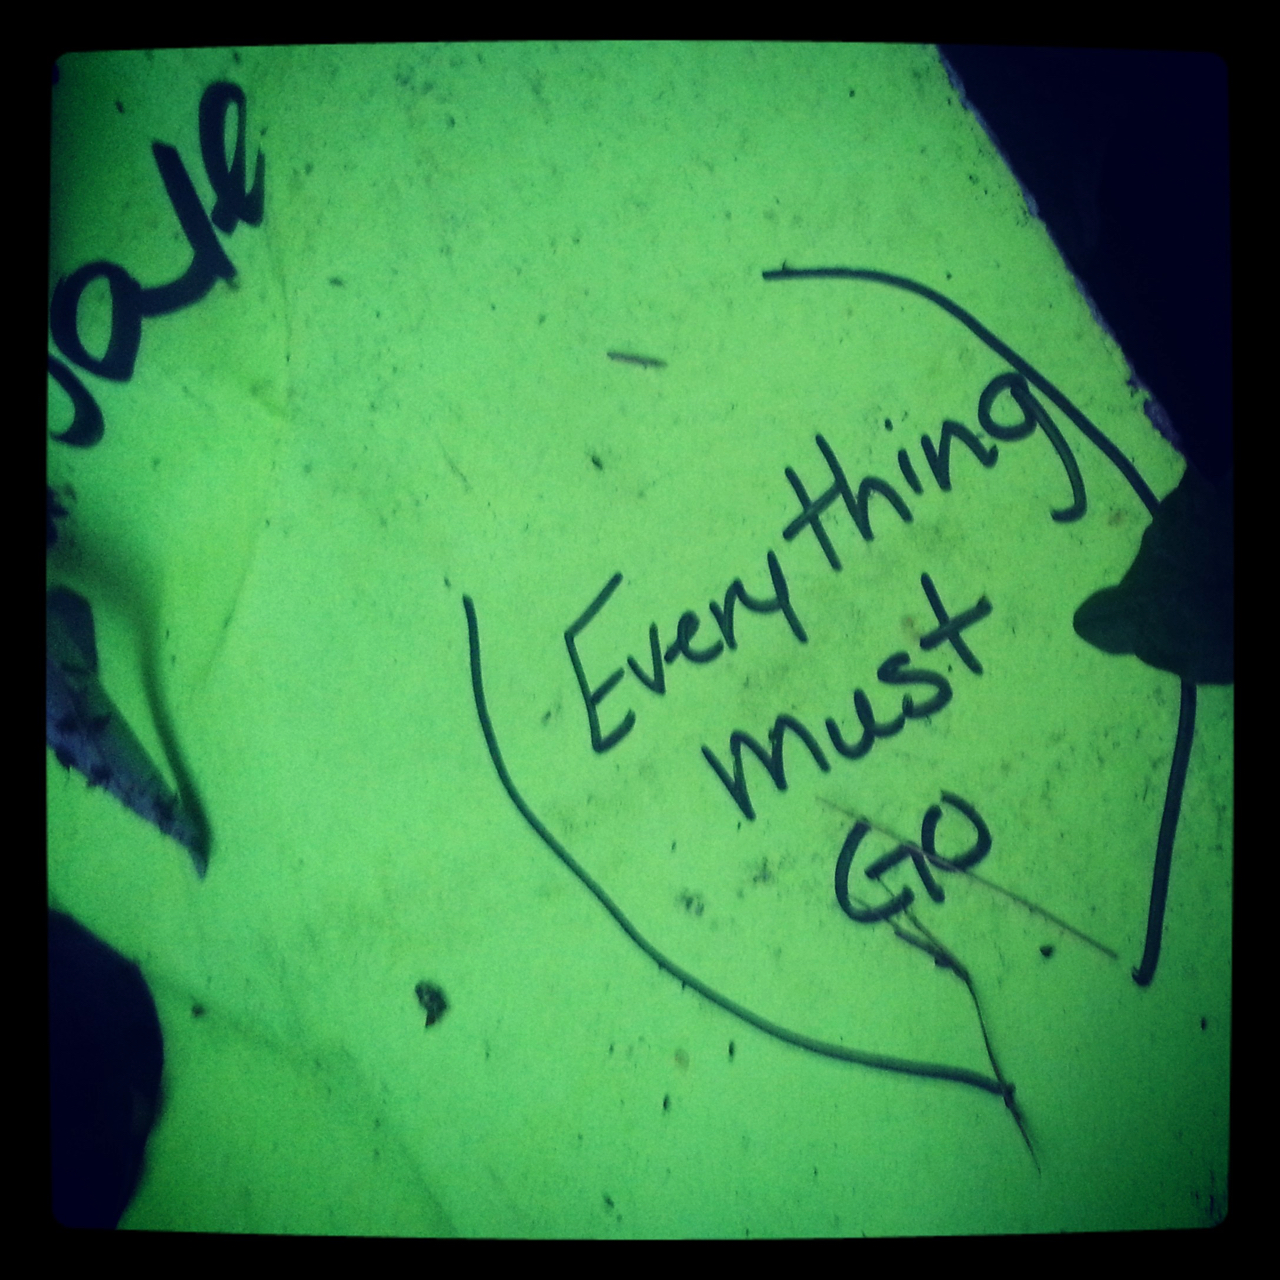 Sale
Everything
must
GO